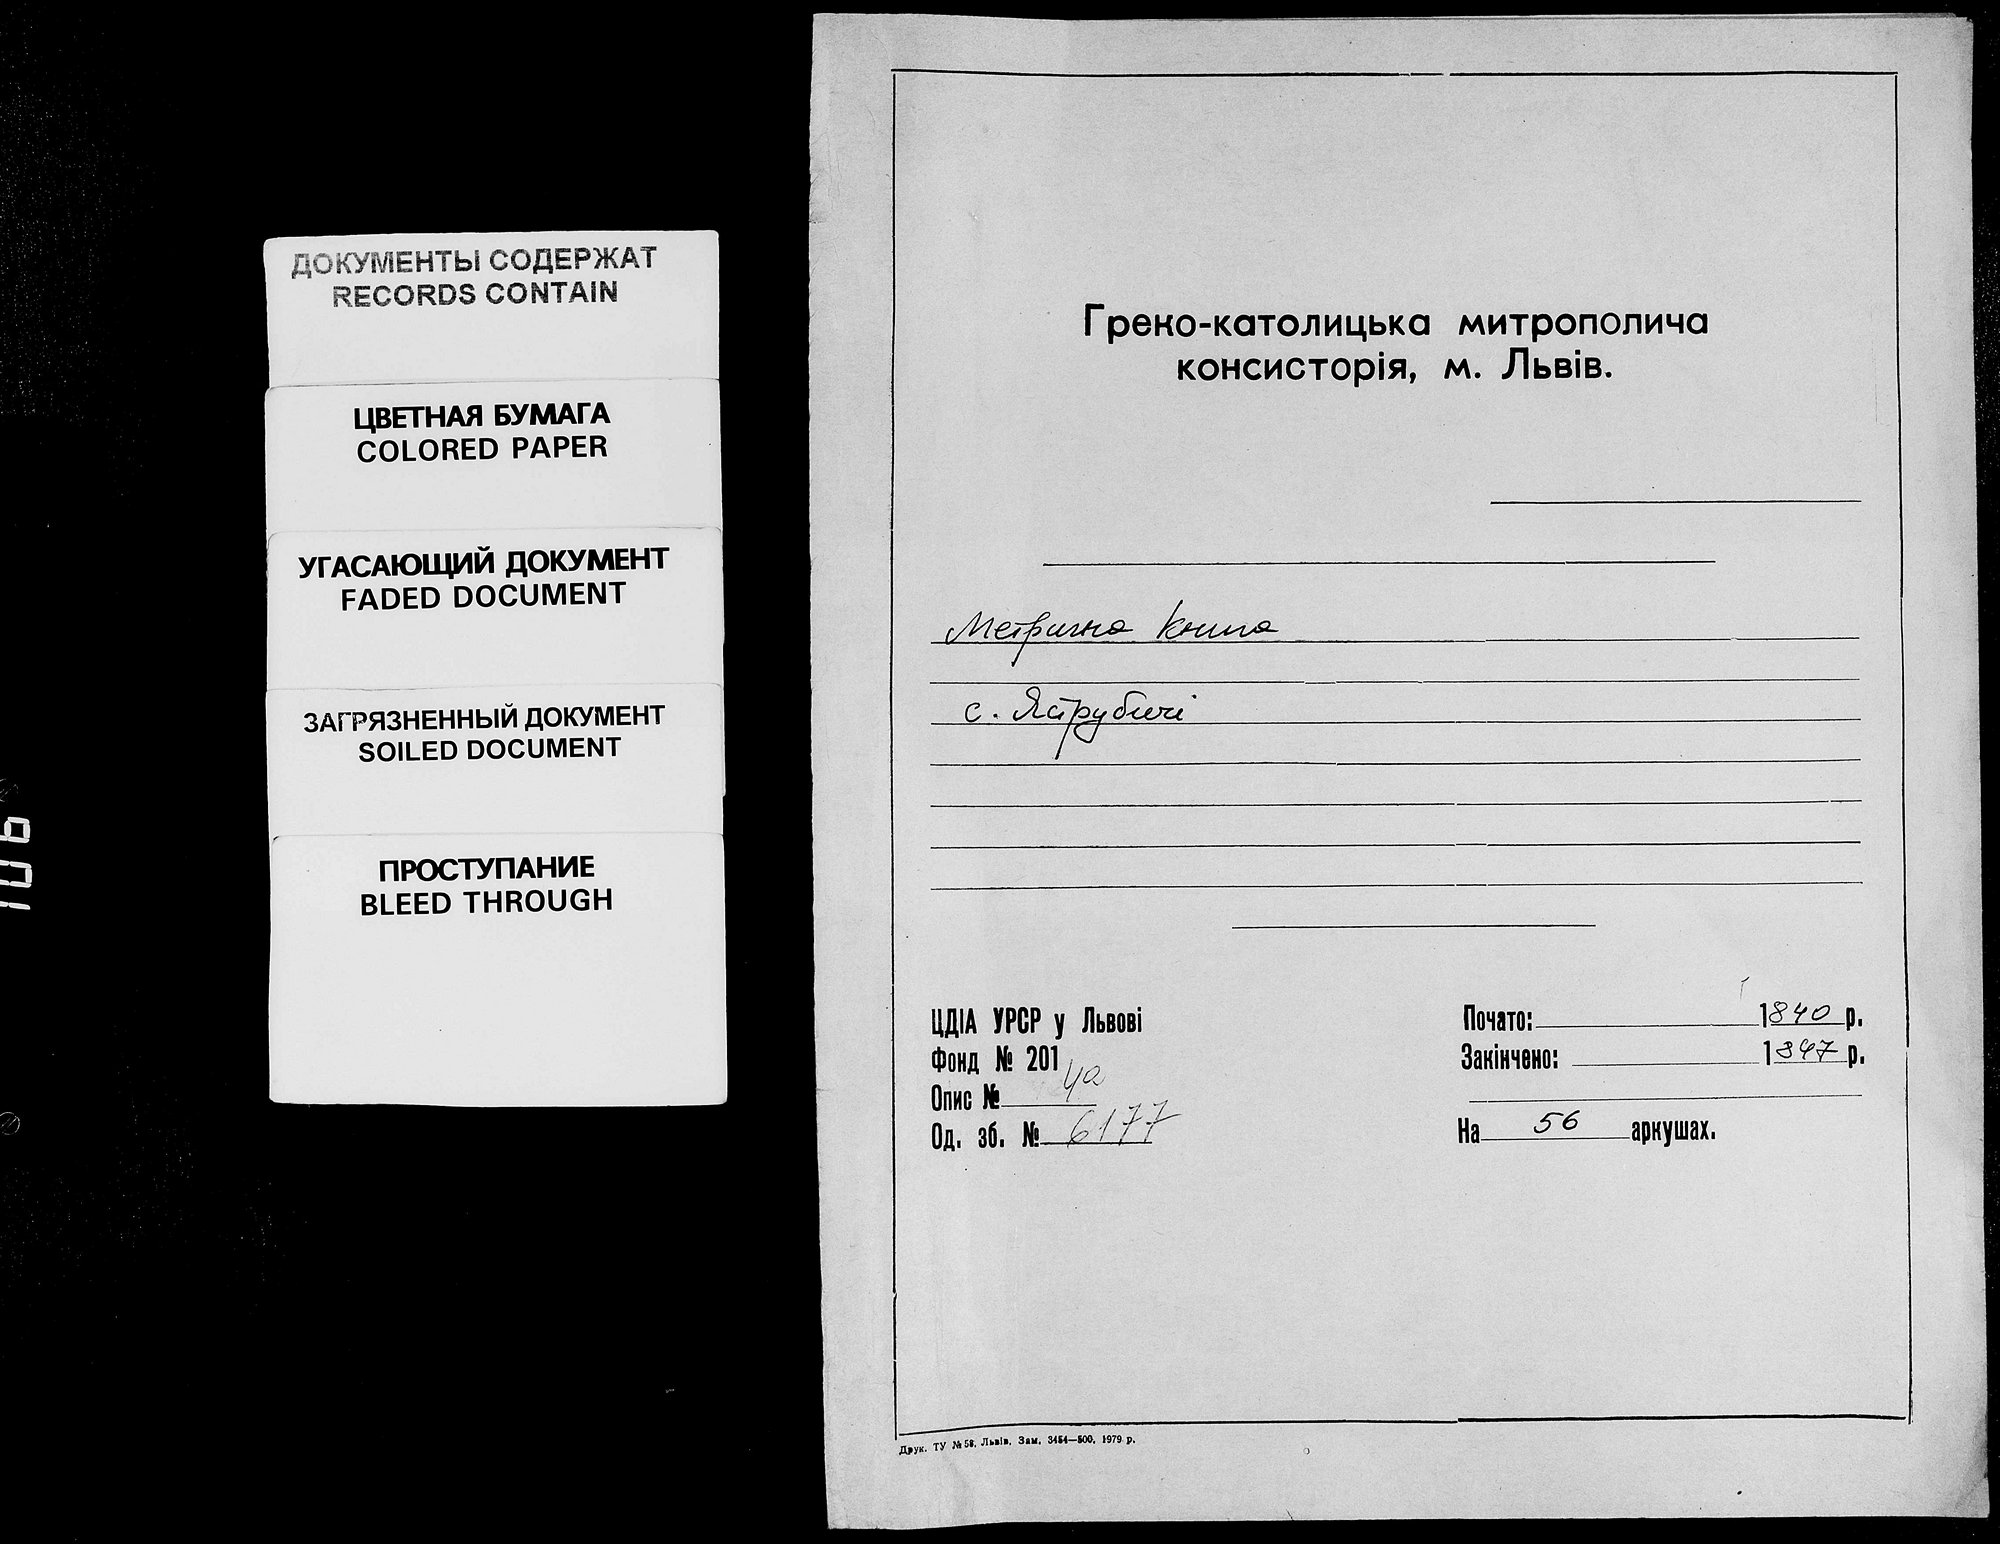 ДОКУМЕНТЫ СОДЕРЖАТ
RECORDS CONTAIN
ЦВЕТНАЯ БУМАГА
COLORED PAPER
УГАСАЮЩИЙ ДОКУМЕНТ
FADED DOCUMENT
ЗАГРЯЗНЕННЫЙ ДОКУМЕНТ
SOILED DOCUMENT
ПРОСТУПАНИЕ
BLEED THROUGH
106
Греко-католицька митрополича
консисторія, м. Львів.
Метрична книга
с. Яструбичі
ЦДІА УРСР у Львові
Фонд № 201
Опис № 4а
Од. зб. № 6177
Почато: 1840 р.
Закінчено: 1847 р.
На 56 аркушах.
Друк. ТУ № 58. Львів. Зам. 3454—500. 1979 р.